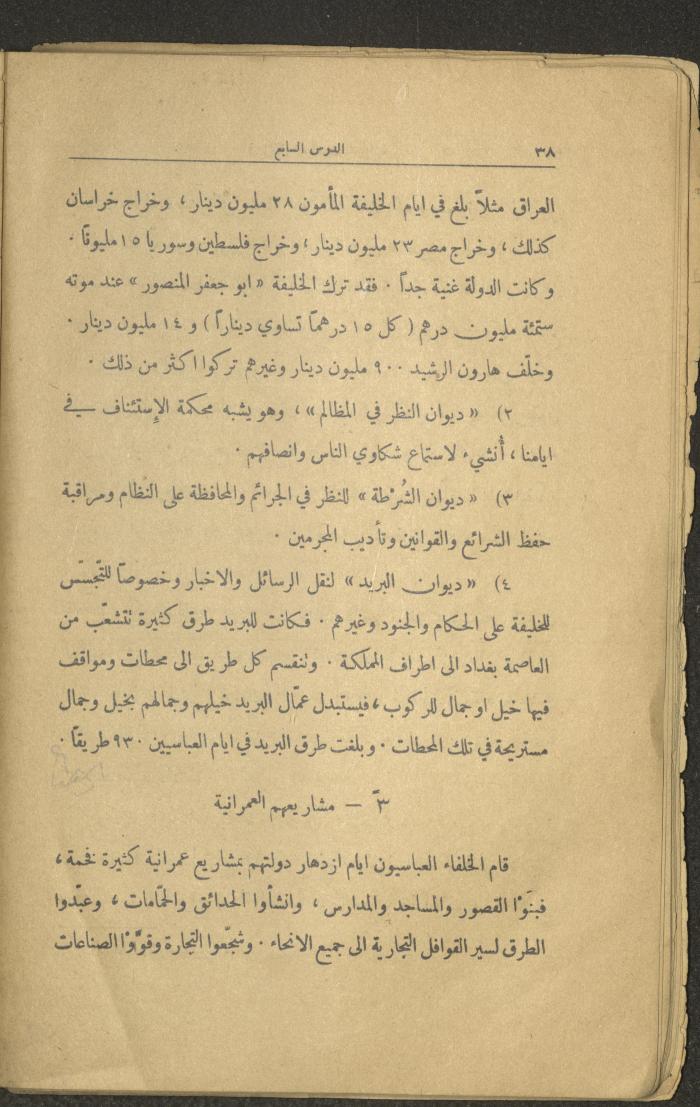 ٣٨
الدرس السابع
العراق مثلاً بلغ في ايام الخليفة المأمون ٢٨ مليون دينار ، وخراج خراسان
كذلك ، وخراج مصر ٢٣ مليون دينار ، وخراج فلسطين وسوريا ١٥ مليونًا ٠
وكانت الدولة غنية جداً ٠ فقد ترك الخليفة « ابو جعفر المنصور » عند موته
ستمئة مليون درهم ( كل ١٥ درهمًا تساوي ديناراً ) و ١٤ مليون دينار ٠
وخلّف هارون الرشيد ٩٠٠ مليون دينار وغيرهم تركوا اكثر من ذلك ٠
٢) « ديوان النظر في المظالم » ، وهو يشبه محكمة الإستئناف في
ايامنا ، أُنشيء لاستماع شكاوي الناس وانصافهم ٠
٣) « ديوان الشُرْطة » للنظر في الجرائم والمحافظة على النظام ومراقبة
حفظ الشرائع والقوانين وتأديب المجرمين ٠
٤) « ديوان البريد » لنقل الرسائل والاخبار وخصوصاً للتّجسّس
للخليفة على الحكام والجنود وغيرهم ٠ فكانت للبريد طرق كثيرة تتشعّب من
العاصمة بغداد الى اطراف المملكة ٠ وتنقسم كل طريق الى محطات ومواقف
فيها خيل او جمال للركوب ، فيستبدل عمّال البريد خيلهم وجمالهم بخيل وجمال
مستريحة في تلك المحطات ٠ وبلغت طرق البريد في ايام العباسيين ٩٣٠ طريقًا ٠
٣ً – مشاريعهم العمرانية
قام الخلفاء العباسيون ايام ازدهار دولتهم بمشاريع عمرانية كثيرة فخمة ،
فبنَوْا القصور والمساجد والمدارس ، وانشأوا الحدائق والحمّامات ، وعبّدوا
الطرق لسير القوافل التجارية الى جميع الانحاء ٠ وشجّعوا التجارة وقوَّوْا الصناعات